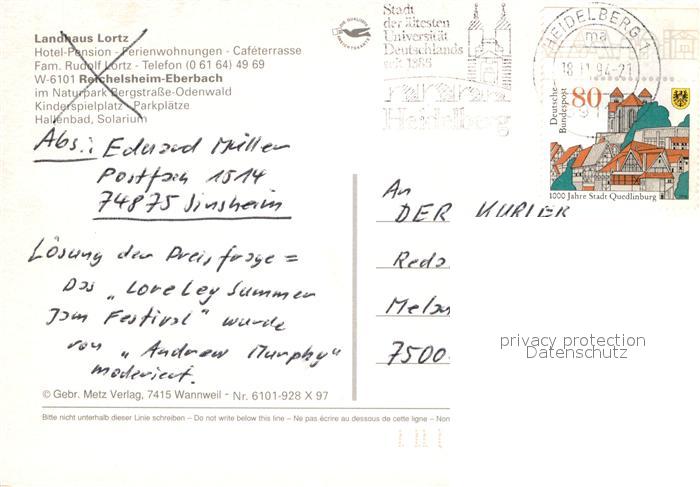 Landhaus Lortz
Hotel-Pension - Ferienwohnungen - Caféterrasse
Fam. Rudolf Lortz - Telefon (0 61 64) 49 69
W-6101 Reichelsheim-Eberbach
im Naturpark Bergstraße-Odenwald
Kinderspielplatz - Parkplätze
Hallenbad, Solarium
Abs.: Eduard Müller
Postfach 1514
74875 Sinsheim
Lösung der Preisfrage =
Das „Loreley Summer
Jam Festival" wurde
von „Andrew Murphy"
moderiert.
© Gebr. Metz Verlag, 7415 Wannweil - Nr. 6101-928 X 97
Bitte nicht unterhalb dieser Linie schreiben – Do not write below this line – Ne pas écrire au dessous de cette ligne – Non
Stadt
der ältesten
Universität
Deutschlands
seit 1386
Heidelberg
HEIDELBERG 1
ma
18.11.94-21
Deutsche
Bundespost
80
1000 Jahre Stadt Quedlinburg
An
DER KURIER
Reda
7500
privacy protection
Datenschutz